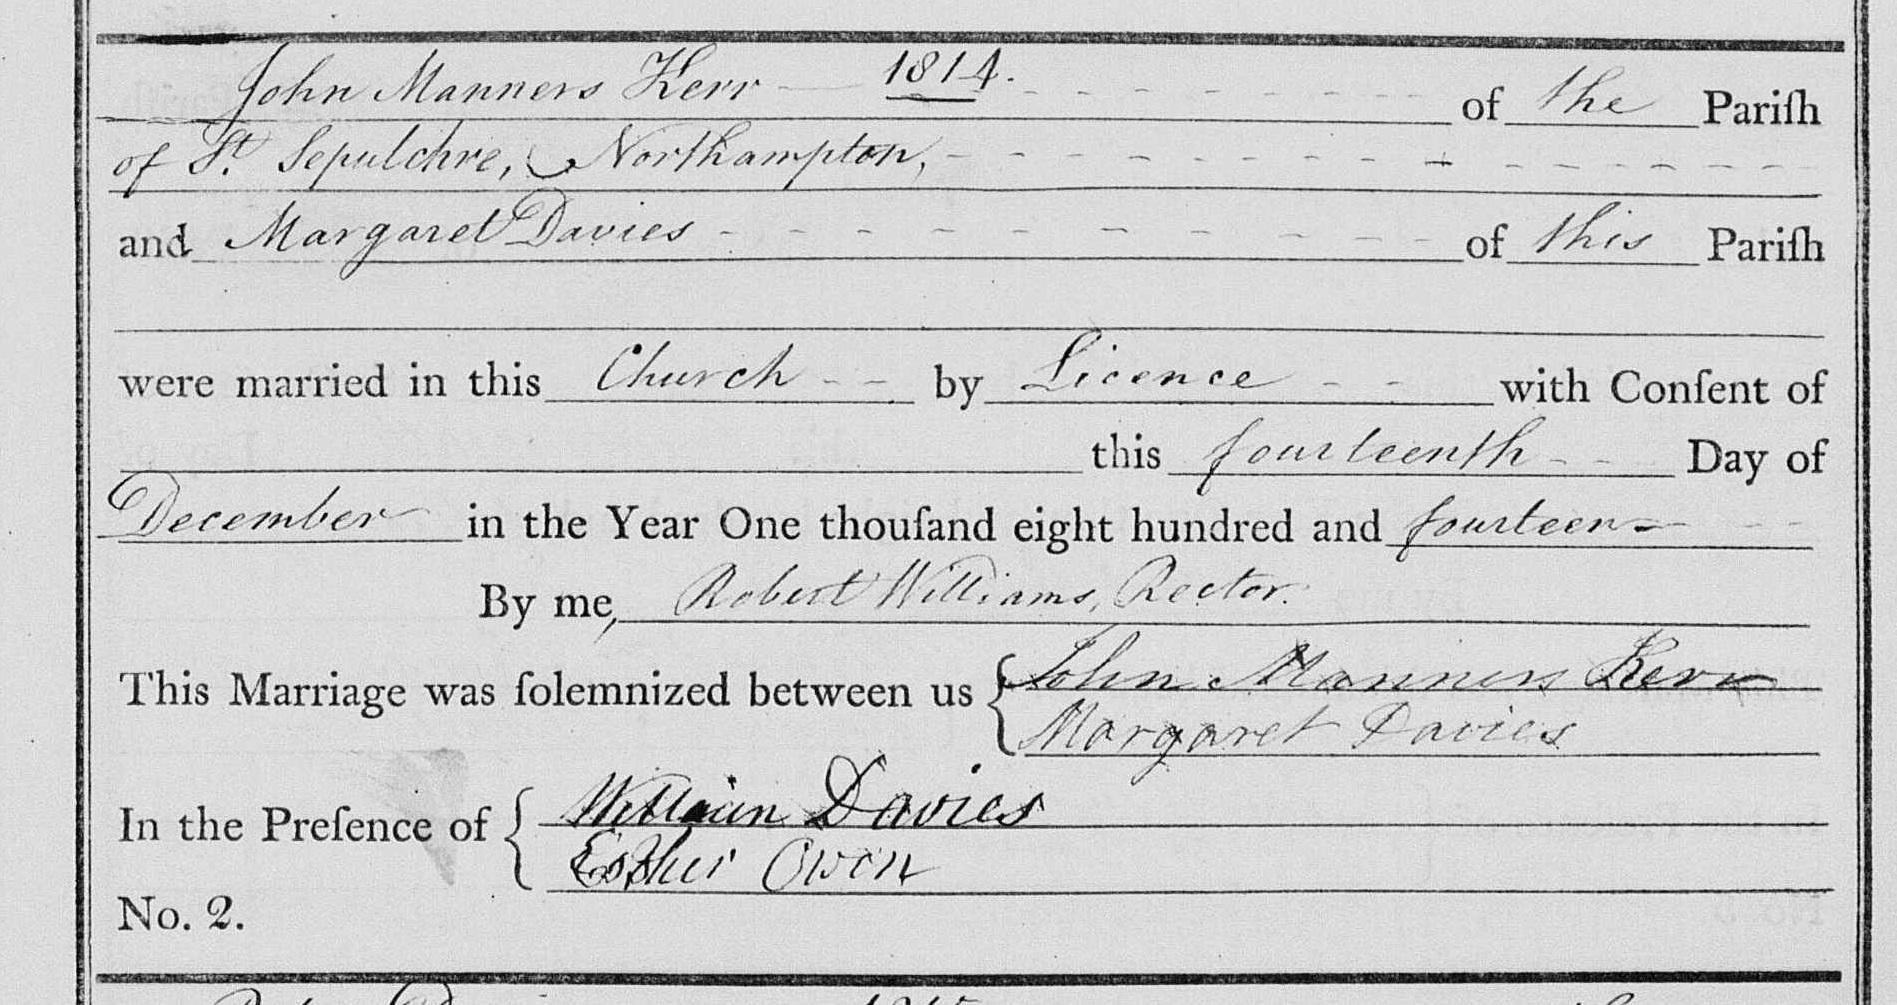 John Manners Kerr 1814. of the Pariſh
of St. Sepulchre, Northampton,
and Margaret Davies of this Pariſh
were married in this Church by Licence with Conſent of
this fourteenth Day of
December in the Year One thouſand eight hundred and fourteen
By me, Robert Williams, Rector.
This Marriage was ſolemnized between us { John Manners Kerr
Margaret Davies
In the Preſence of { William Davies
Esther Owen
No. 2.